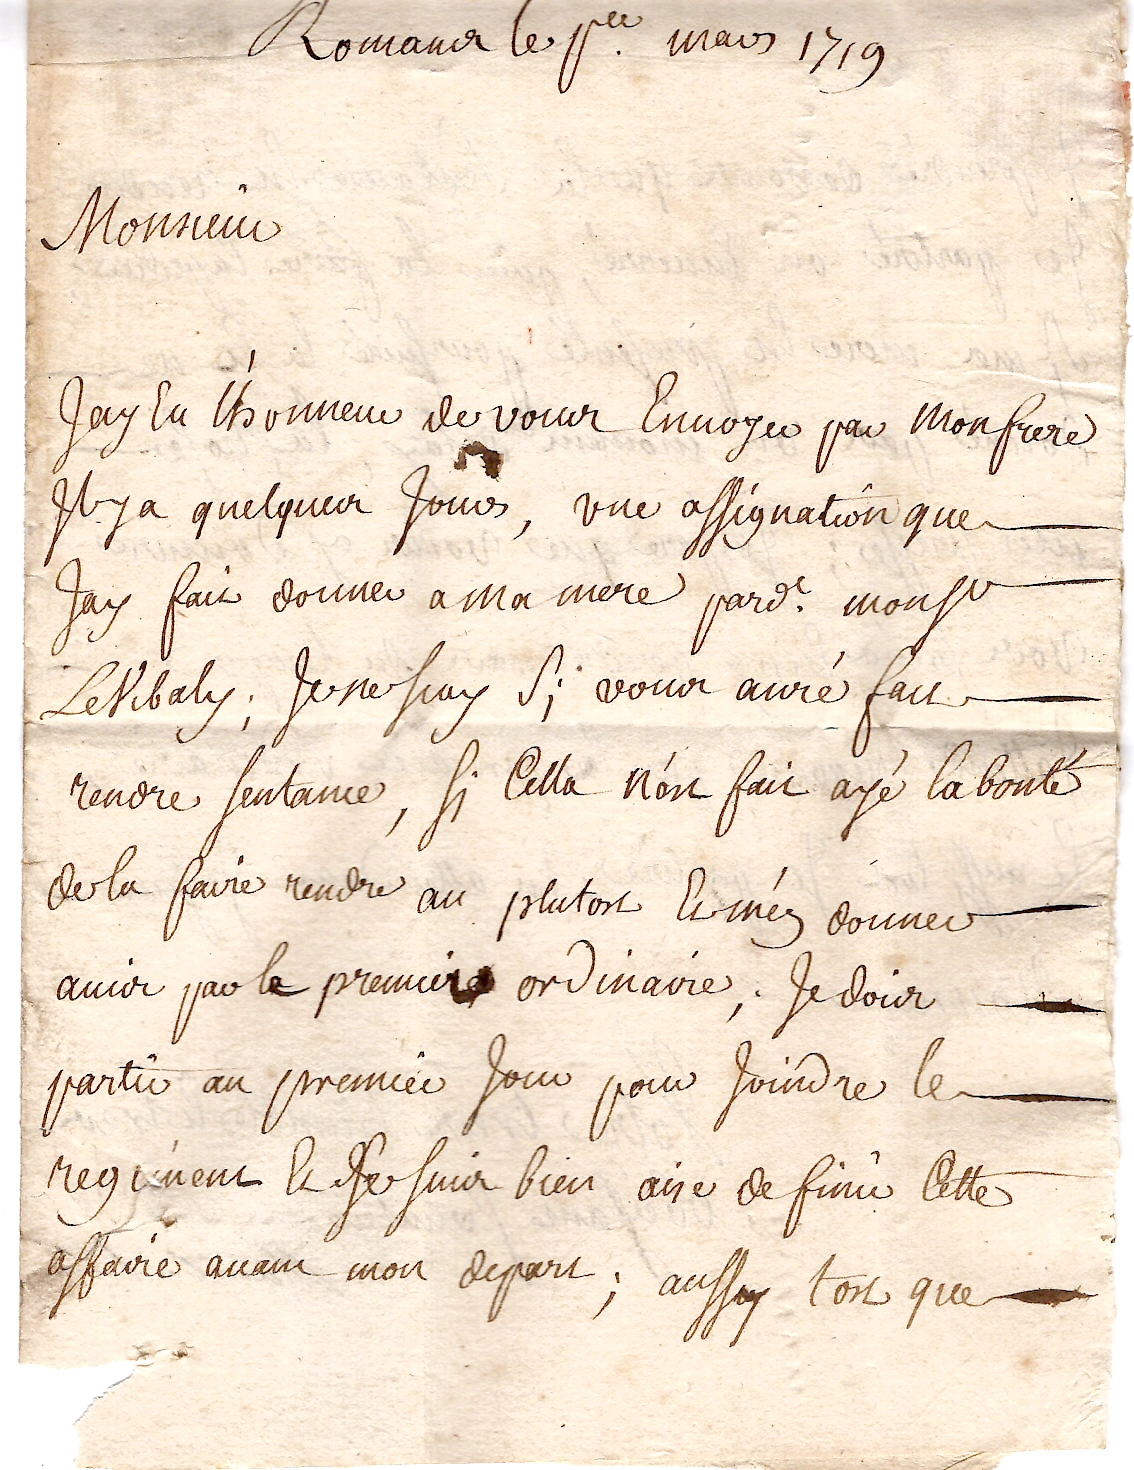 Romans le p.er mars 1719
Monsieur
Jay Eu lhonneur de vous Enuoyer par mon frere
Jl y a quelques Jours, vne assignation que
Jay fait donner a ma mere pard.t mons.r
LeVibaly; Je ne scay Sj vous auré fait
rendre sentance, sj Cella nést fait ayé la bonté
de la faire rendre au plutost Et mén donner
auis par le premier ordinaire, Je dois
partir au premier Jour pour Joindre le
regiment Et Je suis bien aise de finir Cette
affaire auant mon depart; aussy tost que